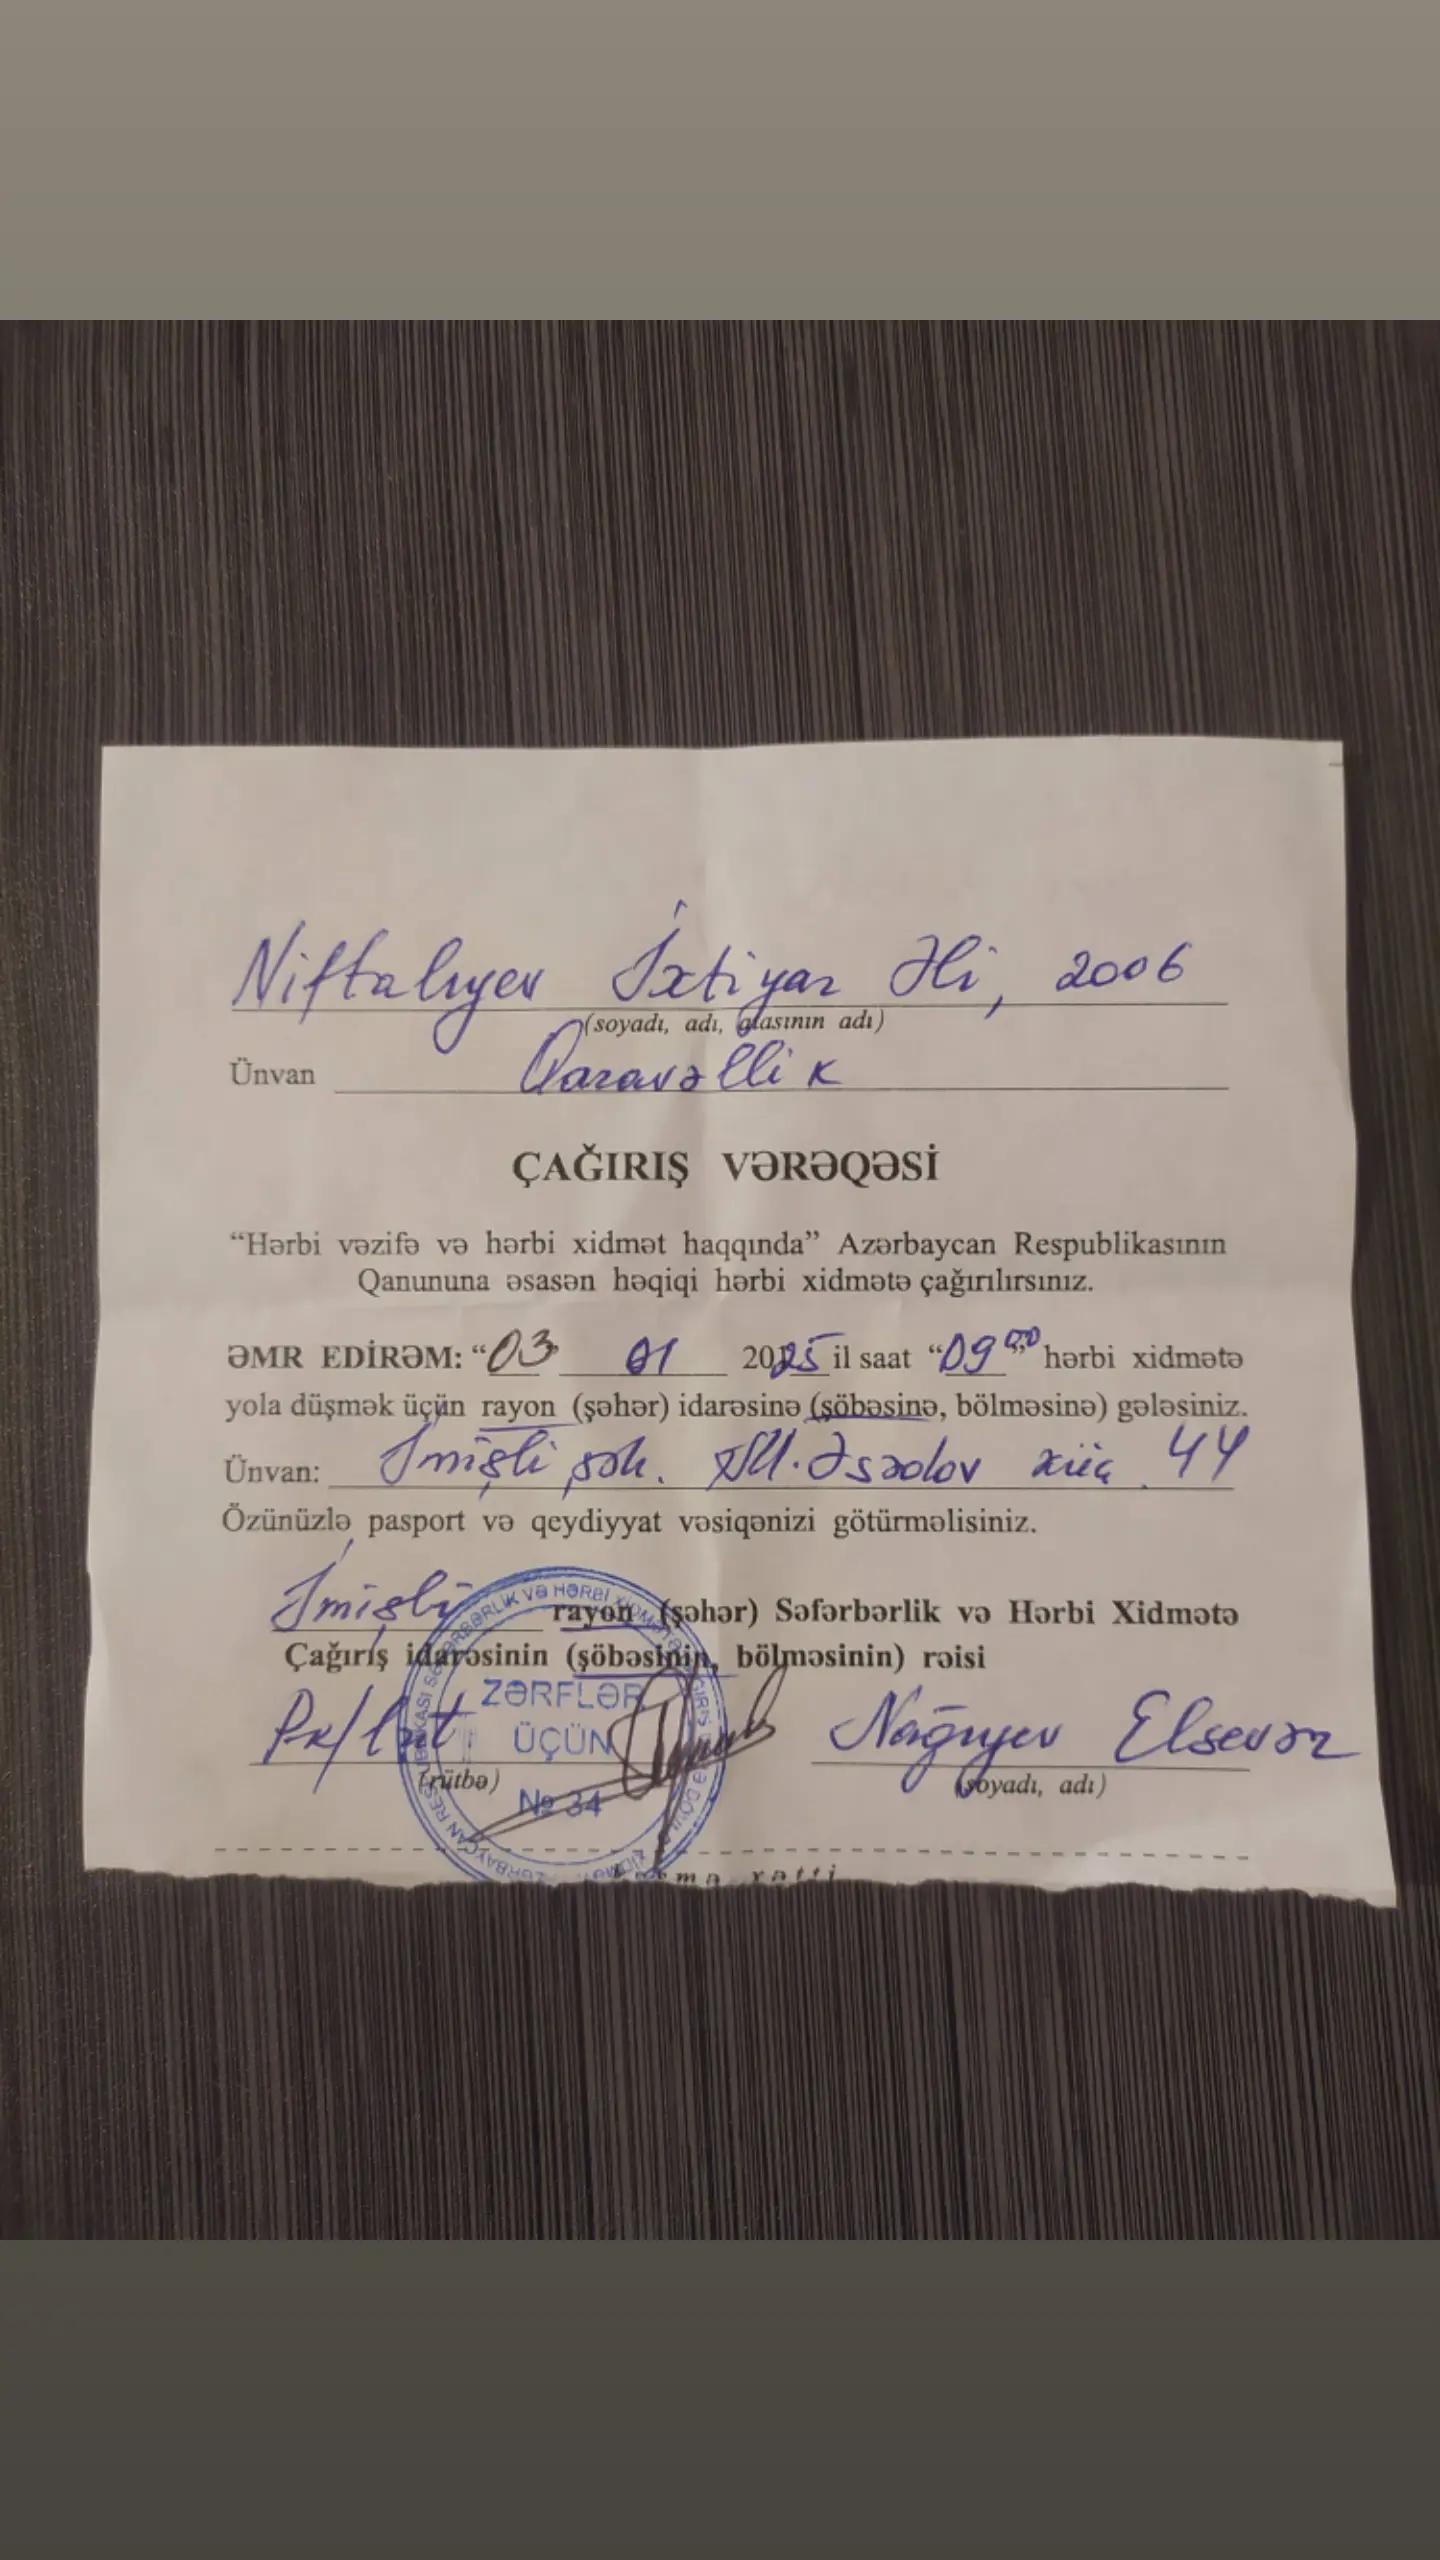 Niftalıyev İxtiyar Əli, 2006
(soyadı, adı, atasının adı)
Ünvan Qaravəllik
ÇAĞIRIŞ VƏRƏQƏSİ
“Hərbi vəzifə və hərbi xidmət haqqında” Azərbaycan Respublikasının
Qanununa əsasən həqiqi hərbi xidmətə çağırılırsınız.
ƏMR EDİRƏM: “03” 01 2025 il saat “09 00” hərbi xidmətə
yola düşmək üçün rayon (şəhər) idarəsinə (şöbəsinə, bölməsinə) gələsiniz.
Ünvan: İmişli şəh. Əsədov küç. 44
Özünüzlə pasport və qeydiyyat vəsiqənizi götürməlisiniz.
İmişli rayon (şəhər) Səfərbərlik və Hərbi Xidmətə
Çağırış idarəsinin (şöbəsinin, bölməsinin) rəisi
Nağıyev Elsevər
(rütbə) (soyadı, adı)
ZƏRFLƏR
ÜÇÜN
№ 34